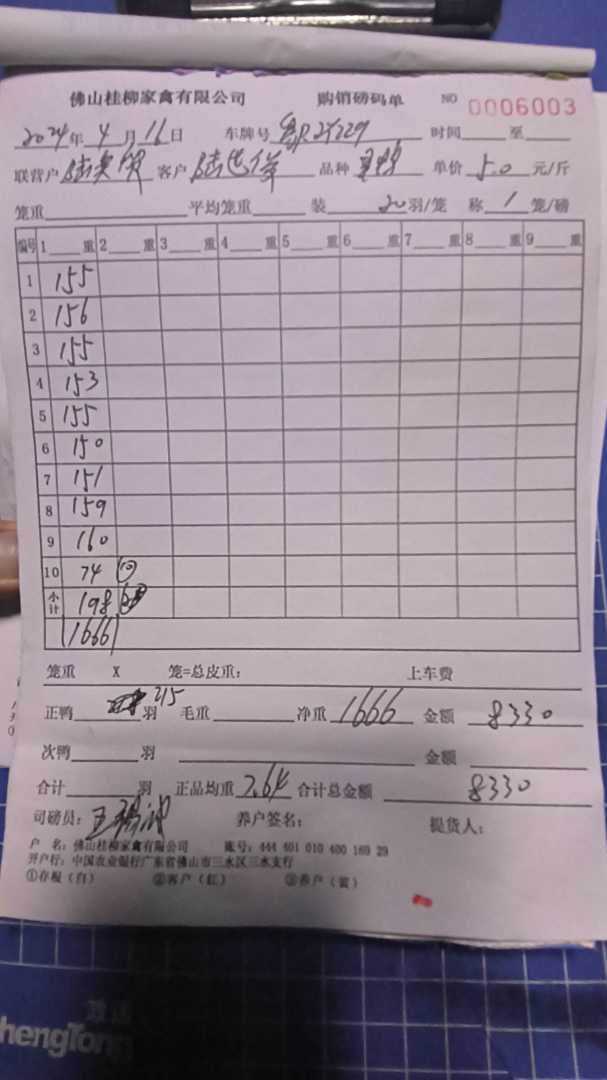 佛山桂柳家禽有限公司 购销磅码单 NO 0006003
2024年4月16日 车牌号 时间 至
联营户 客户 品种 单价 5.0 元/斤
笼重 平均笼重 装 20 羽/笼 称 1 笼/磅
编号 1 重 2 重 3 重 4 重 5 重 6 重 7 重 8 重 9 重
1 155
2 156
3 155
4 153
5 155
6 150
7 151
8 159
9 160
10 74 10
小计 198
1666
笼重 X 笼=总皮重: 上车费
正鸭 215 羽 毛重 净重 1666 金额 8330
次鸭 羽 金额
合计 羽 正品均重 7.64 合计总金额 8330
司磅员: 王 养户签名: 提货人:
户 名: 佛山桂柳家禽有限公司 账号: 444 401 010 400 169 29
开户行: 中国农业银行广东省佛山市三水区三水支行
①存根(白) ②客户(红) ③养户(蓝)
hengTong